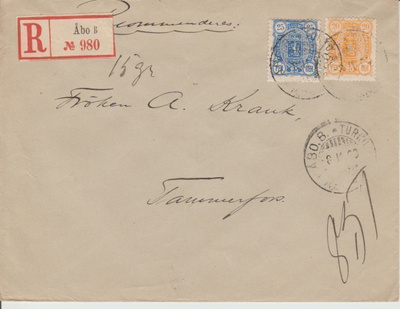 Recommenderas.
R
Åbo B
№ 980
15 gr
Fröken A. Krank,
ÅBO.B. * TURKU
Tammerfors.